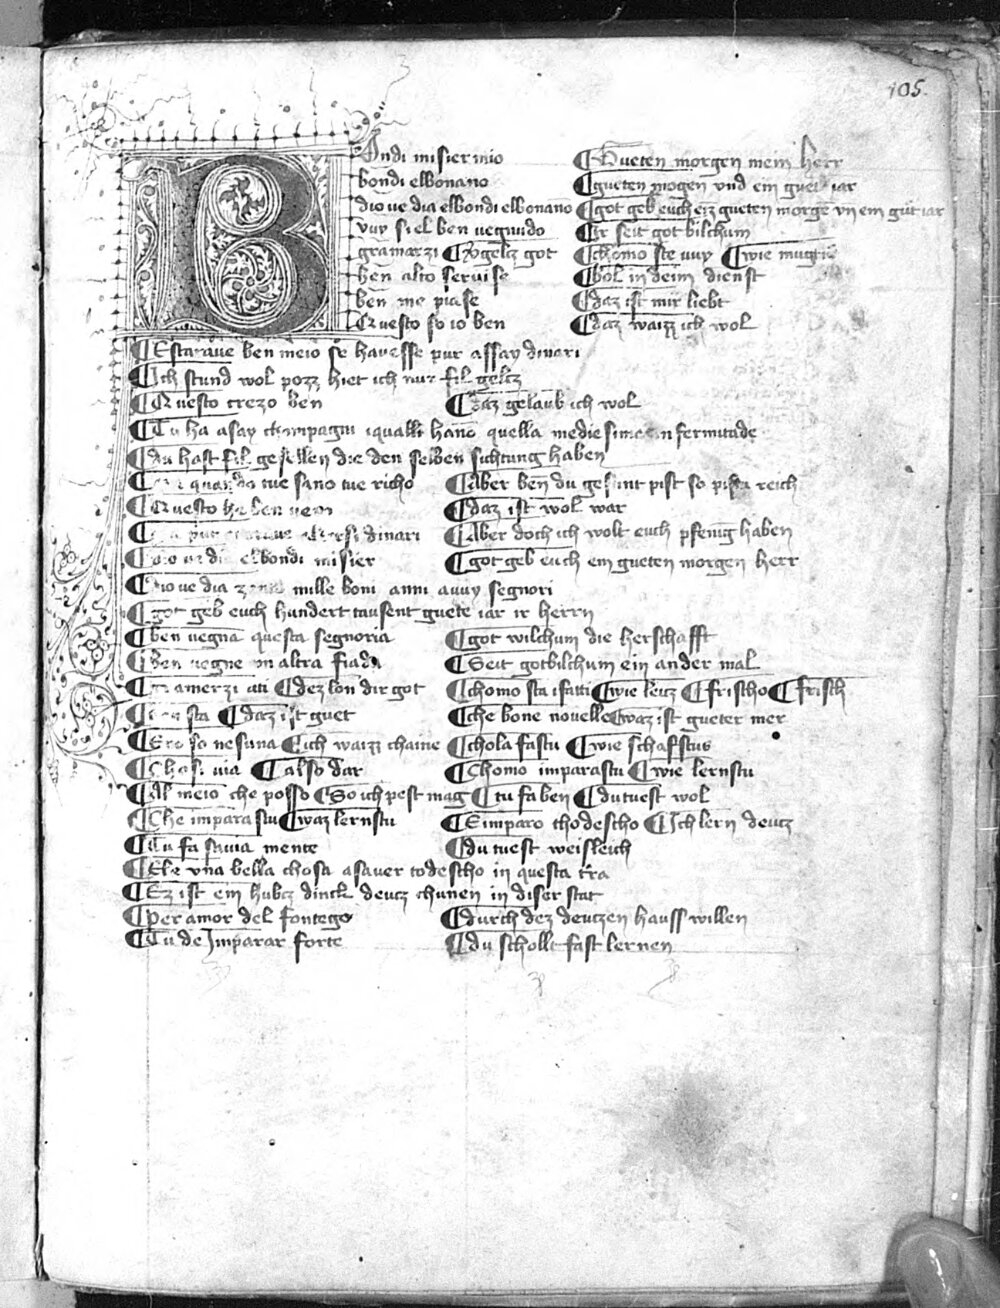 105.
Bondi misier mio ¶ Gueten morgen mein herr
bondi elbonano ¶ gueten mogen vnd ein guet iar
dio ue dia elbondi elbonano ¶ got geb euch eiz gueten morgē vn ein gut iar
vuy siel ben uegnudo ¶ Ir seit got bilchum
gramarzi ¶ Vgeltz got ¶ chomo ste uuy ¶ wie mugt
ben alto seruise ¶ bol in deim dienst
ben me piase ¶ daz ist mir liebt
Questo so io ben ¶ daz waizz ich wol
¶ Estaraue ben meio se hauesse pur assay dinari
¶ Ich stund wol pozz hiet ich nur fil geltz
¶ Questo crezo ben ¶ daz gelaub ich wol
¶ Tu ha asay chompagni iqualli hano quella mediesima infermitade
¶ du hast fil gesellen die den selben sichtung haben
quando tue sano tue richo ¶ Aber ben du gesunt pist so pist reich
¶ Questo he ben uero ¶ daz ist wol war
pur dinari ¶ Aber doch ich wolt euch pfenig haben
¶ dio ue dia elbondi misier ¶ got geb euch ein gueten morgen herr
¶ dio ue dia mille boni anni auuy segnori
¶ got geb euch hundert tausent guete iar ir herrn
¶ ben uegna questa segnoria ¶ got wilchum die herschafft
¶ ben uegne vn altra fiada ¶ Seit gotbilchum ein ander mal
¶ Gramerzi ati ¶ dez lon dir got ¶ chomo sta ifatti ¶ wie leitz ¶ frischo ¶ frisch
sta ¶ daz ist guet ¶ che bone nouelle ¶ waz ist gueter mer
¶ so nesuna ¶ ich waizz chaine ¶ chola fastu ¶ wie schafstus
¶ Chosi uia ¶ also dar ¶ Chomo imparastu ¶ wie lernstu
¶ Al meio che posso ¶ So ich pest mag ¶ tu fa ben ¶ du tuest wol
¶ Che imparastu ¶ waz lernstu ¶ Eimparo thodescho ¶ Ich lern deutz
¶ Tu fa sauia mente ¶ du tuest weisleich
¶ Ele vna bella chosa asauer todescho in questa tra
¶ Ez ist ein hubtz dinck deutz chunen in diser stat
¶ Per amor del fontego ¶ durch dez deutzen hauss willen
¶ Tu de Imparar forte ¶ du schollt fast lernen